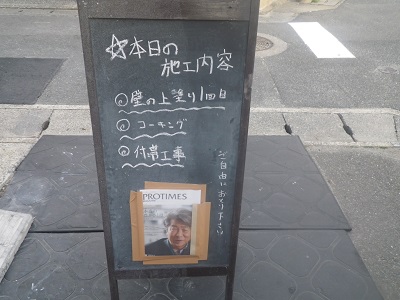 ☆本日の
施工内容
①壁の上塗り1回目
②コーキング
③付帯工事
ご自由にお取り下さい
PROTIMES